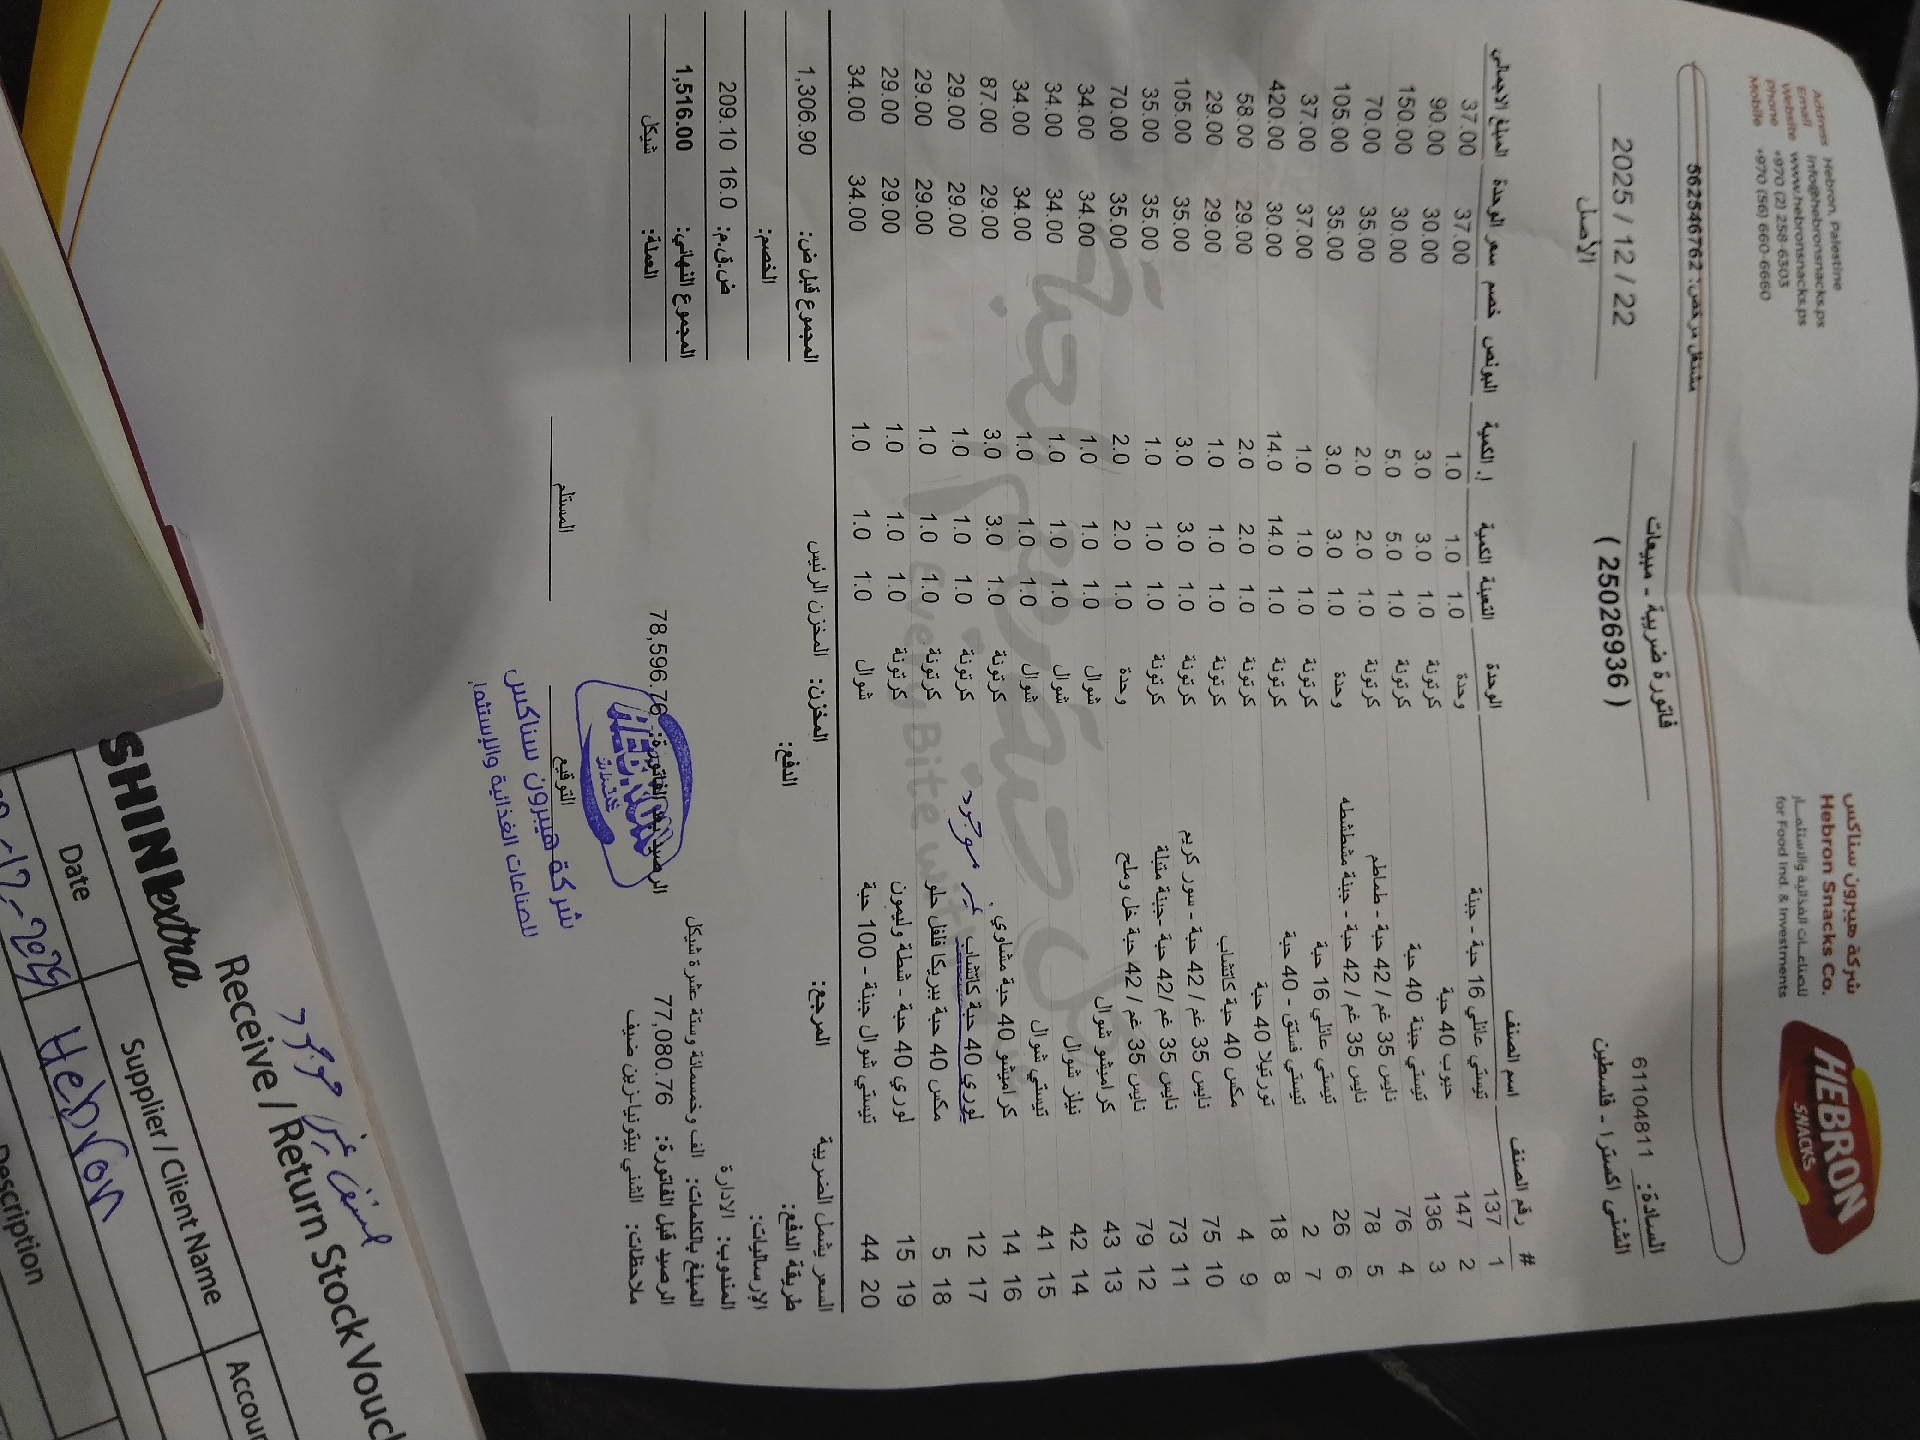 شركة هيبرون سناكس
Hebron Snacks Co.
للصناعات الغذائية والاستثمار
for Food Ind. & Investments
HEBRON
SNACKS
Adrress Hebron, Palestine
Email info@hebronsnacks.ps
Website www.hebronsnacks.ps
Phone +970 (2) 258-6303
Mobile +970 (56) 660-6660
مشتغل مرخص: 562546762
السادة: 61104811
الشني اكسترا - فلسطين
فاتورة ضريبية - مبيعات
( 25026936 )
2025 / 12 / 22
الأصل
# رقم الصنف اسم الصنف الوحدة التعبئة الكمية إ. الكمية البونص خصم سعر الوحدة المبلغ الاجمالي
1 137 تيستي عائلي 16 حبة - جبنة وحدة 1.0 1.0 1.0 37.00 37.00
2 147 حبوب 40 حبة كرتونة 1.0 3.0 3.0 30.00 90.00
3 136 تيستي جبنة 40 حبة كرتونة 1.0 5.0 5.0 30.00 150.00
4 76 نايس 35 غم / 42 حبة - طماطم كرتونة 1.0 2.0 2.0 35.00 70.00
5 78 نايس 35 غم / 42 حبة - جبنة مشطشطه وحدة 1.0 3.0 3.0 35.00 105.00
6 26 تيستي عائلي 16 حبة كرتونة 1.0 1.0 1.0 37.00 37.00
7 2 تيستي فستق - 40 حبة كرتونة 1.0 14.0 14.0 30.00 420.00
8 18 تورتيلا 40 حبة كرتونة 1.0 2.0 2.0 29.00 58.00
9 4 مكس 40 حبة كاتشاب كرتونة 1.0 1.0 1.0 29.00 29.00
10 75 نايس 35 غم / 42 حبة - سور كريم كرتونة 1.0 3.0 3.0 35.00 105.00
11 73 نايس 35 غم /42 حبة -جبنة متبلة كرتونة 1.0 1.0 1.0 35.00 35.00
12 79 نايس 35 غم / 42 حبة خل وملح وحدة 1.0 2.0 2.0 35.00 70.00
13 43 كراميشو شوال شوال 1.0 1.0 1.0 34.00 34.00
14 42 نيلز شوال شوال 1.0 1.0 1.0 34.00 34.00
15 41 تيستي شوال شوال 1.0 1.0 1.0 34.00 34.00
16 14 كراميشو 40 حبة مشاوي كرتونة 1.0 3.0 3.0 29.00 87.00
17 12 لوري 40 حبة كاتشاب غير موجود كرتونة 1.0 1.0 1.0 29.00 29.00
18 5 مكس 40 حبة بيريكا فلفل حلو كرتونة 1.0 1.0 1.0 29.00 29.00
19 15 لوري 40 حبة - شطة وليمون كرتونة 1.0 1.0 1.0 29.00 29.00
20 44 تيستي شوال جبنة - 100 حبة شوال 1.0 1.0 1.0 34.00 34.00
Every Bite
السعر يشمل الضريبة المرجع: المخزن: المخزن الرئيس
طريقة الدفع: الدفع:
الإرساليات:
المندوب: الادارة
المبلغ بالكلمات: الف وخمسمائة وستة عشرة شيكل
الرصيد قبل الفاتورة: 77,080.76 الرصيد بعد الفاتورة: 78,596.76
ملاحظات: الشني بيتونيا-زين ضيف
المجموع قبل ض: 1,306.90
الخصم:
ض.ق.م: 16.0 209.10
المجموع النهائي: 1,516.00
العملة: شيكل
التوقيع المستلم
HEBRON
شركة هيبرون سناكس
للصناعات الغذائية والإستثمار
صنف غير موجود
SHINI extra
Receive / Return Stock Vouc
Date Supplier / Client Name Accoun
Hebron
Description